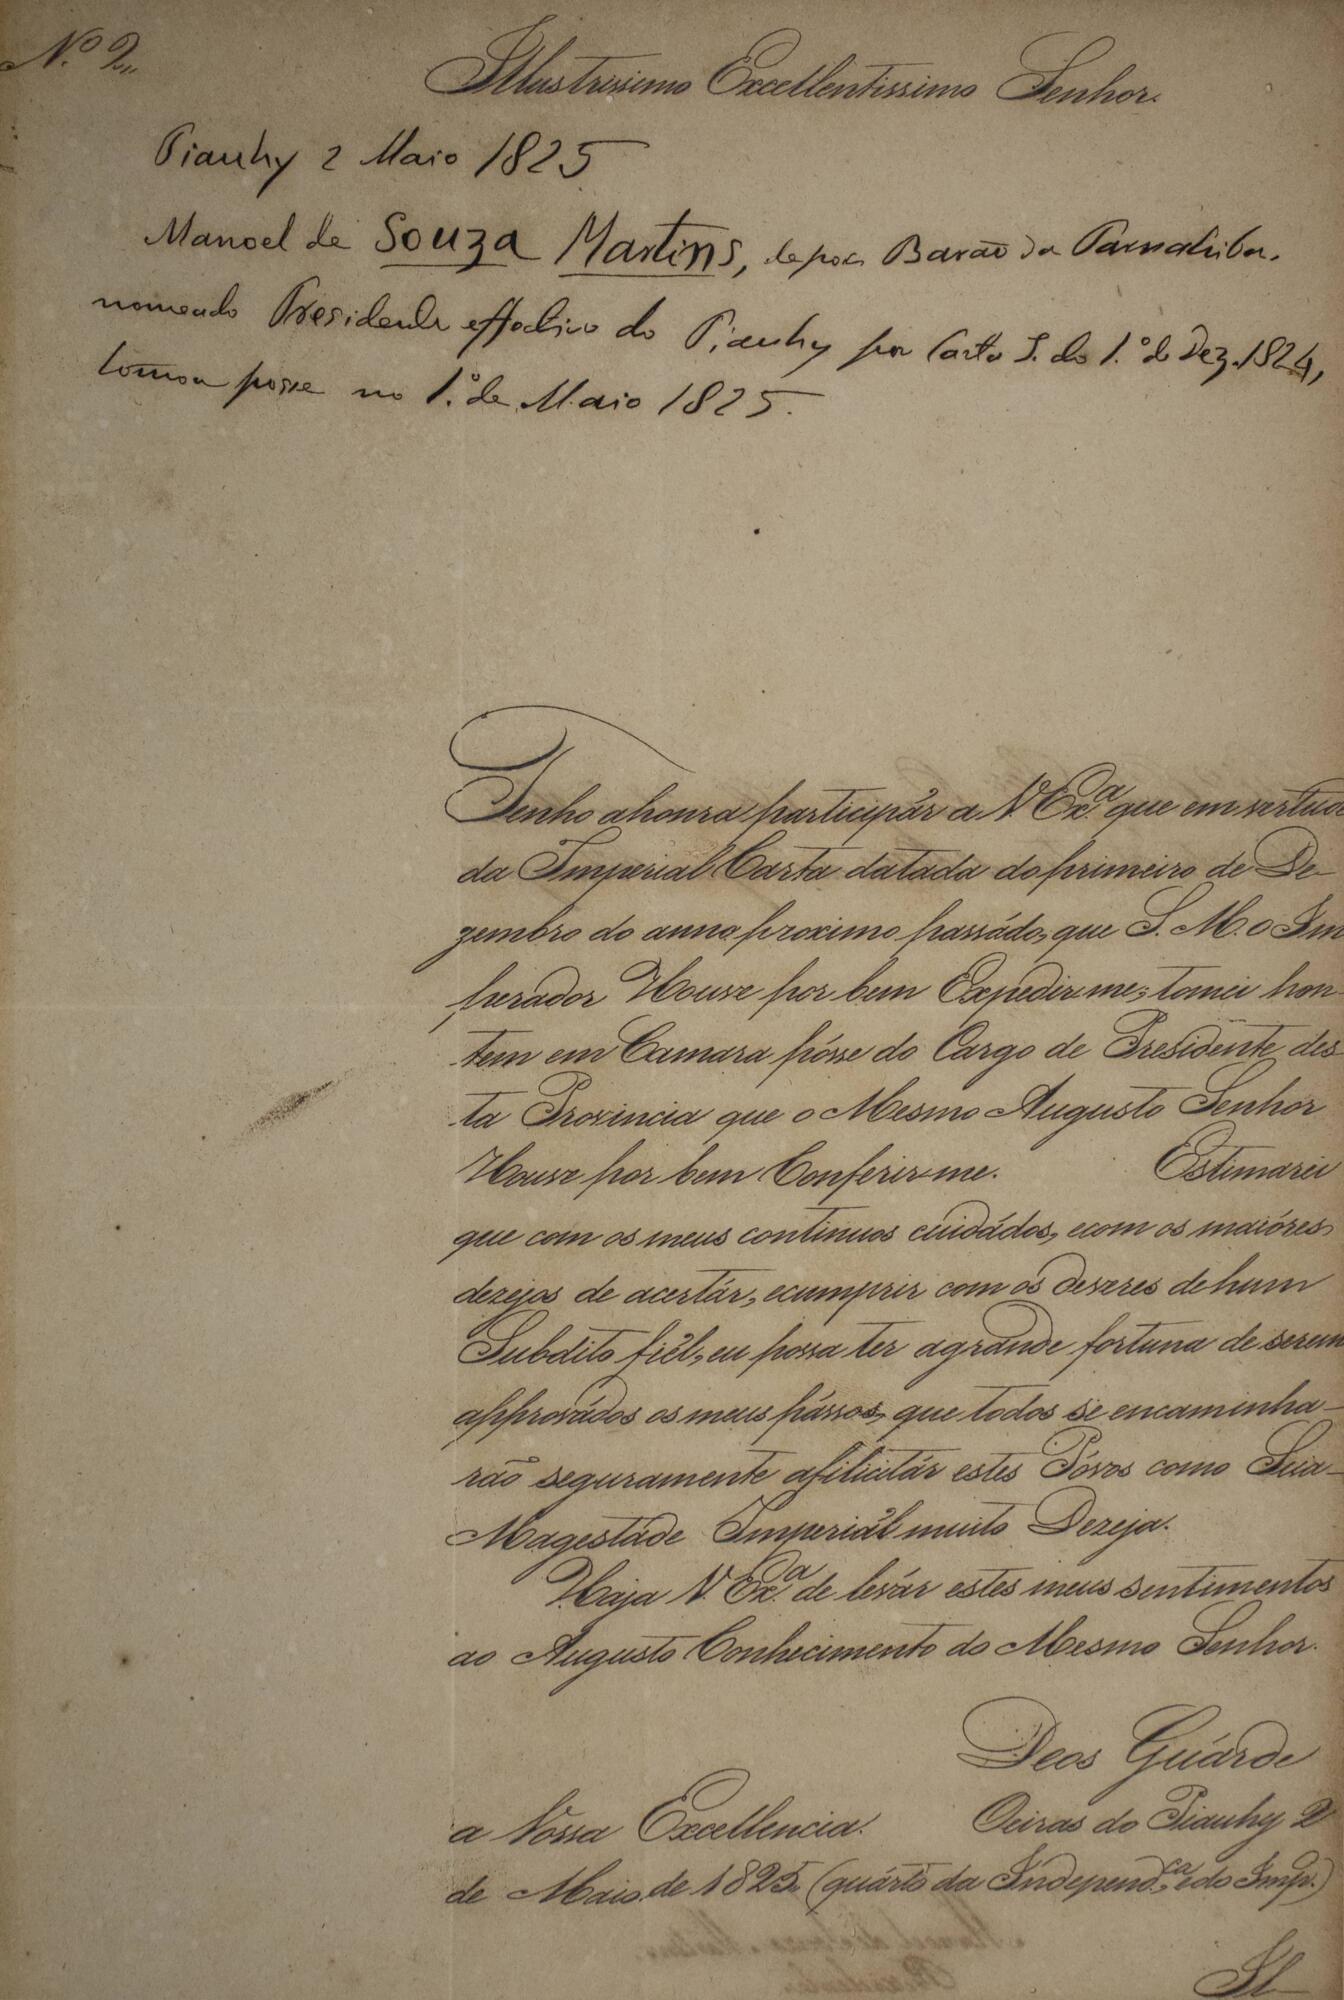 N.º 2
Illustrissimo Excellentissimo Senhor.
Piauhy 2 Maio 1825
Manoel de Souza Martins, depois Barão da Parnahiba,
nomeado Presidente effectivo do Piauhy por Carta I. do 1.º de Dez. 1824,
tomou posse no 1.º de Maio 1825.
Tenho ahonra participár a V. Ex.ª que em vertude
da Imperial Carta datada do primeiro de De-
zembro do anno proximo passádo, que S. M. o Im
perador Houve por bem Expedir-me, tomei hon-
tem em Camara pósse do Cargo de Presidente des-
ta Provincia que o Mesmo Augusto Senhor
Houve por bem Conferir-me. Estimarei
que com os meus continuos cuidádos, ecom os maióres
dezejos de acertár, ecumprir com os deveres de hum
Subdito fiél, eu possa ter agrande fortuna de serem
approvádos os meus pássos, que todos se encaminha-
rão seguramente afilicitár estes Póvos como Sua
Magestáde Imperiál muito Dezeja.
Haja V. Ex.ª de levár estes meus sentimentos
ao Augusto Conhecimento do Mesmo Senhor.
Deos Guárde
a Vossa Excellencia. Oeiras do Piauhy 2
de Maio de 1825 (quárto da Independ.ca e do Imp.)
Il